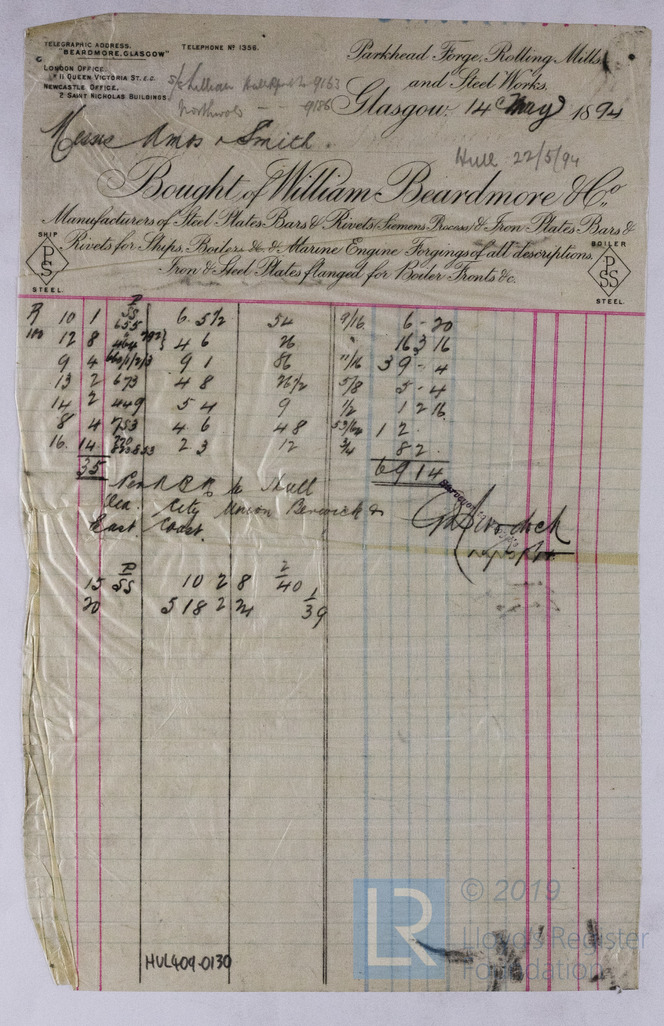 TELEGRAPHIC ADDRESS.
"BEARDMORE, GLASGOW"
TELEPHONE No 1356.
LONDON OFFICE.
11 QUEEN VICTORIA ST. E.C.
NEWCASTLE OFFICE.
2 SAINT NICHOLAS BUILDINGS
Parkhead Forge, Rolling Mills,
and Steel Works,
Glasgow, 14 May 1894
S/S Lillian Hull 9163
Northwold - - 9186
Messrs Amos & Smith.
Hull 22/5/94
Bought of William Beardmore & Co.,
Manufacturers of Steel Plates Bars & Rivets (Siemens Process) & Iron Plates Bars &
Rivets for Ships, Boilers &c & Marine Engine Forgings of all descriptions,
Iron & Steel Plates flanged for Boiler Fronts &c.
SHIP
PS
STEEL.
BOILER
PSS
STEEL.
P
SS
10 1 655 6 5 1/2 54 9/16 6 - 20
12 8 4 6 26 " 16 3 16
9 4 9 1 86 11/16 39 - 4
13 2 673 4 8 26 1/2 5/8 5 - 4
14 2 449 5 4 9 1/2 1 2 16
8 4 753 4 6 48 53/64 12
16. 14 2 3 12 3/4 8 2
35 6 9 14
Per N B R to Hull
via City Union Berwick &
East Coast.
15 P/SS 10 2 8 2/40
20 5 18 2 24 1/39
HUL409-0130
LR
© 2019
Lloyd's Register
Foundation